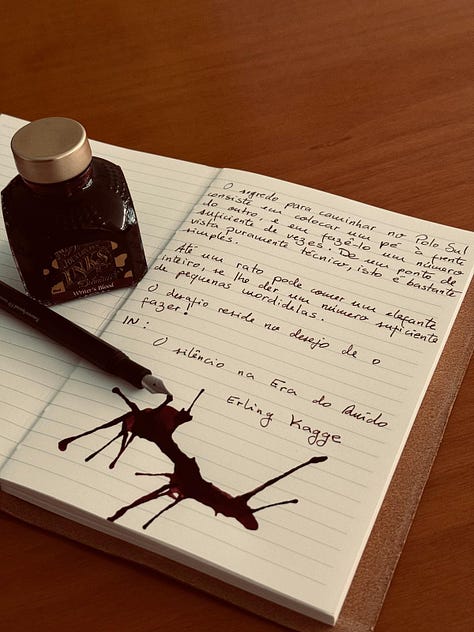 INKS
Writer's Blood
O segredo para caminhar no Polo Sul
consiste em colocar um pé à frente
do outro, e em fazê-lo um número
suficiente de vezes. De um ponto de
vista puramente técnico, isto é bastante
simples.
Até um rato pode comer um elefante
inteiro, se lhe der um número suficiente
de pequenas mordidelas.
O desafio reside no desejo de o
fazer!
IN:
O silêncio na Era do Ruído
Erling Kagge